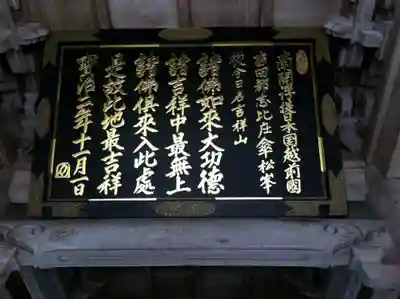 南閻浮提日本国越前國
吉田郡志比庄傘松峯
從今日名吉祥山
諸佛如来大功德
諸吉祥中最無上
諸佛俱来入此處
是故此地最吉祥
寶治二年十一月一日